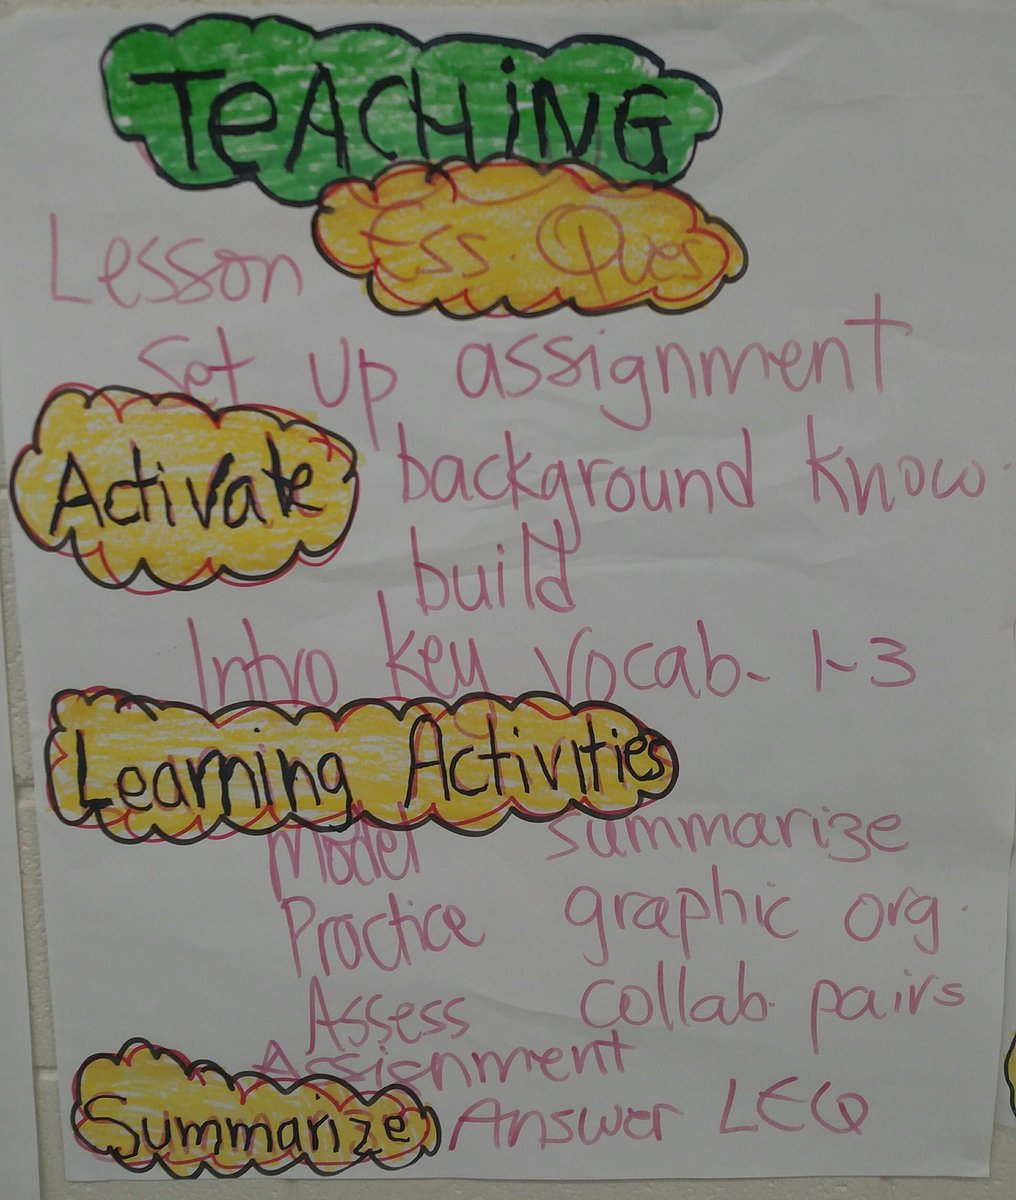 TeACHiNG
Lesson Ess. Ques
Set up assignment
Activate background know.
build
Intro key vocab- 1-3
Learning Activities
Model summarize
Practice graphic org.
Assess collab. pairs
Assignment
Summarize Answer LEQ